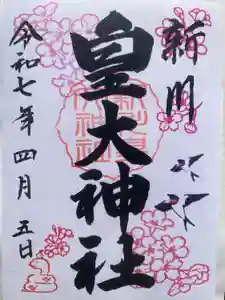 新川
皇大神社
令和七年四月五日